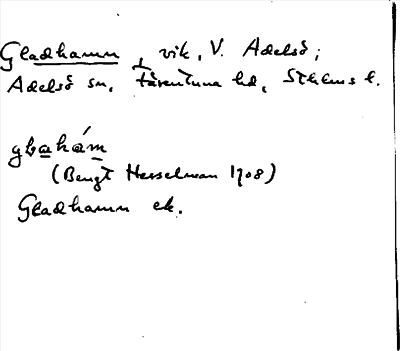 Gladhamn, vik, V. Adelsö;
Adelsö sn, Färentuna hd, Sthlms l.
glahám
(Bengt Hesselman 1908)
Gladhamn ek.